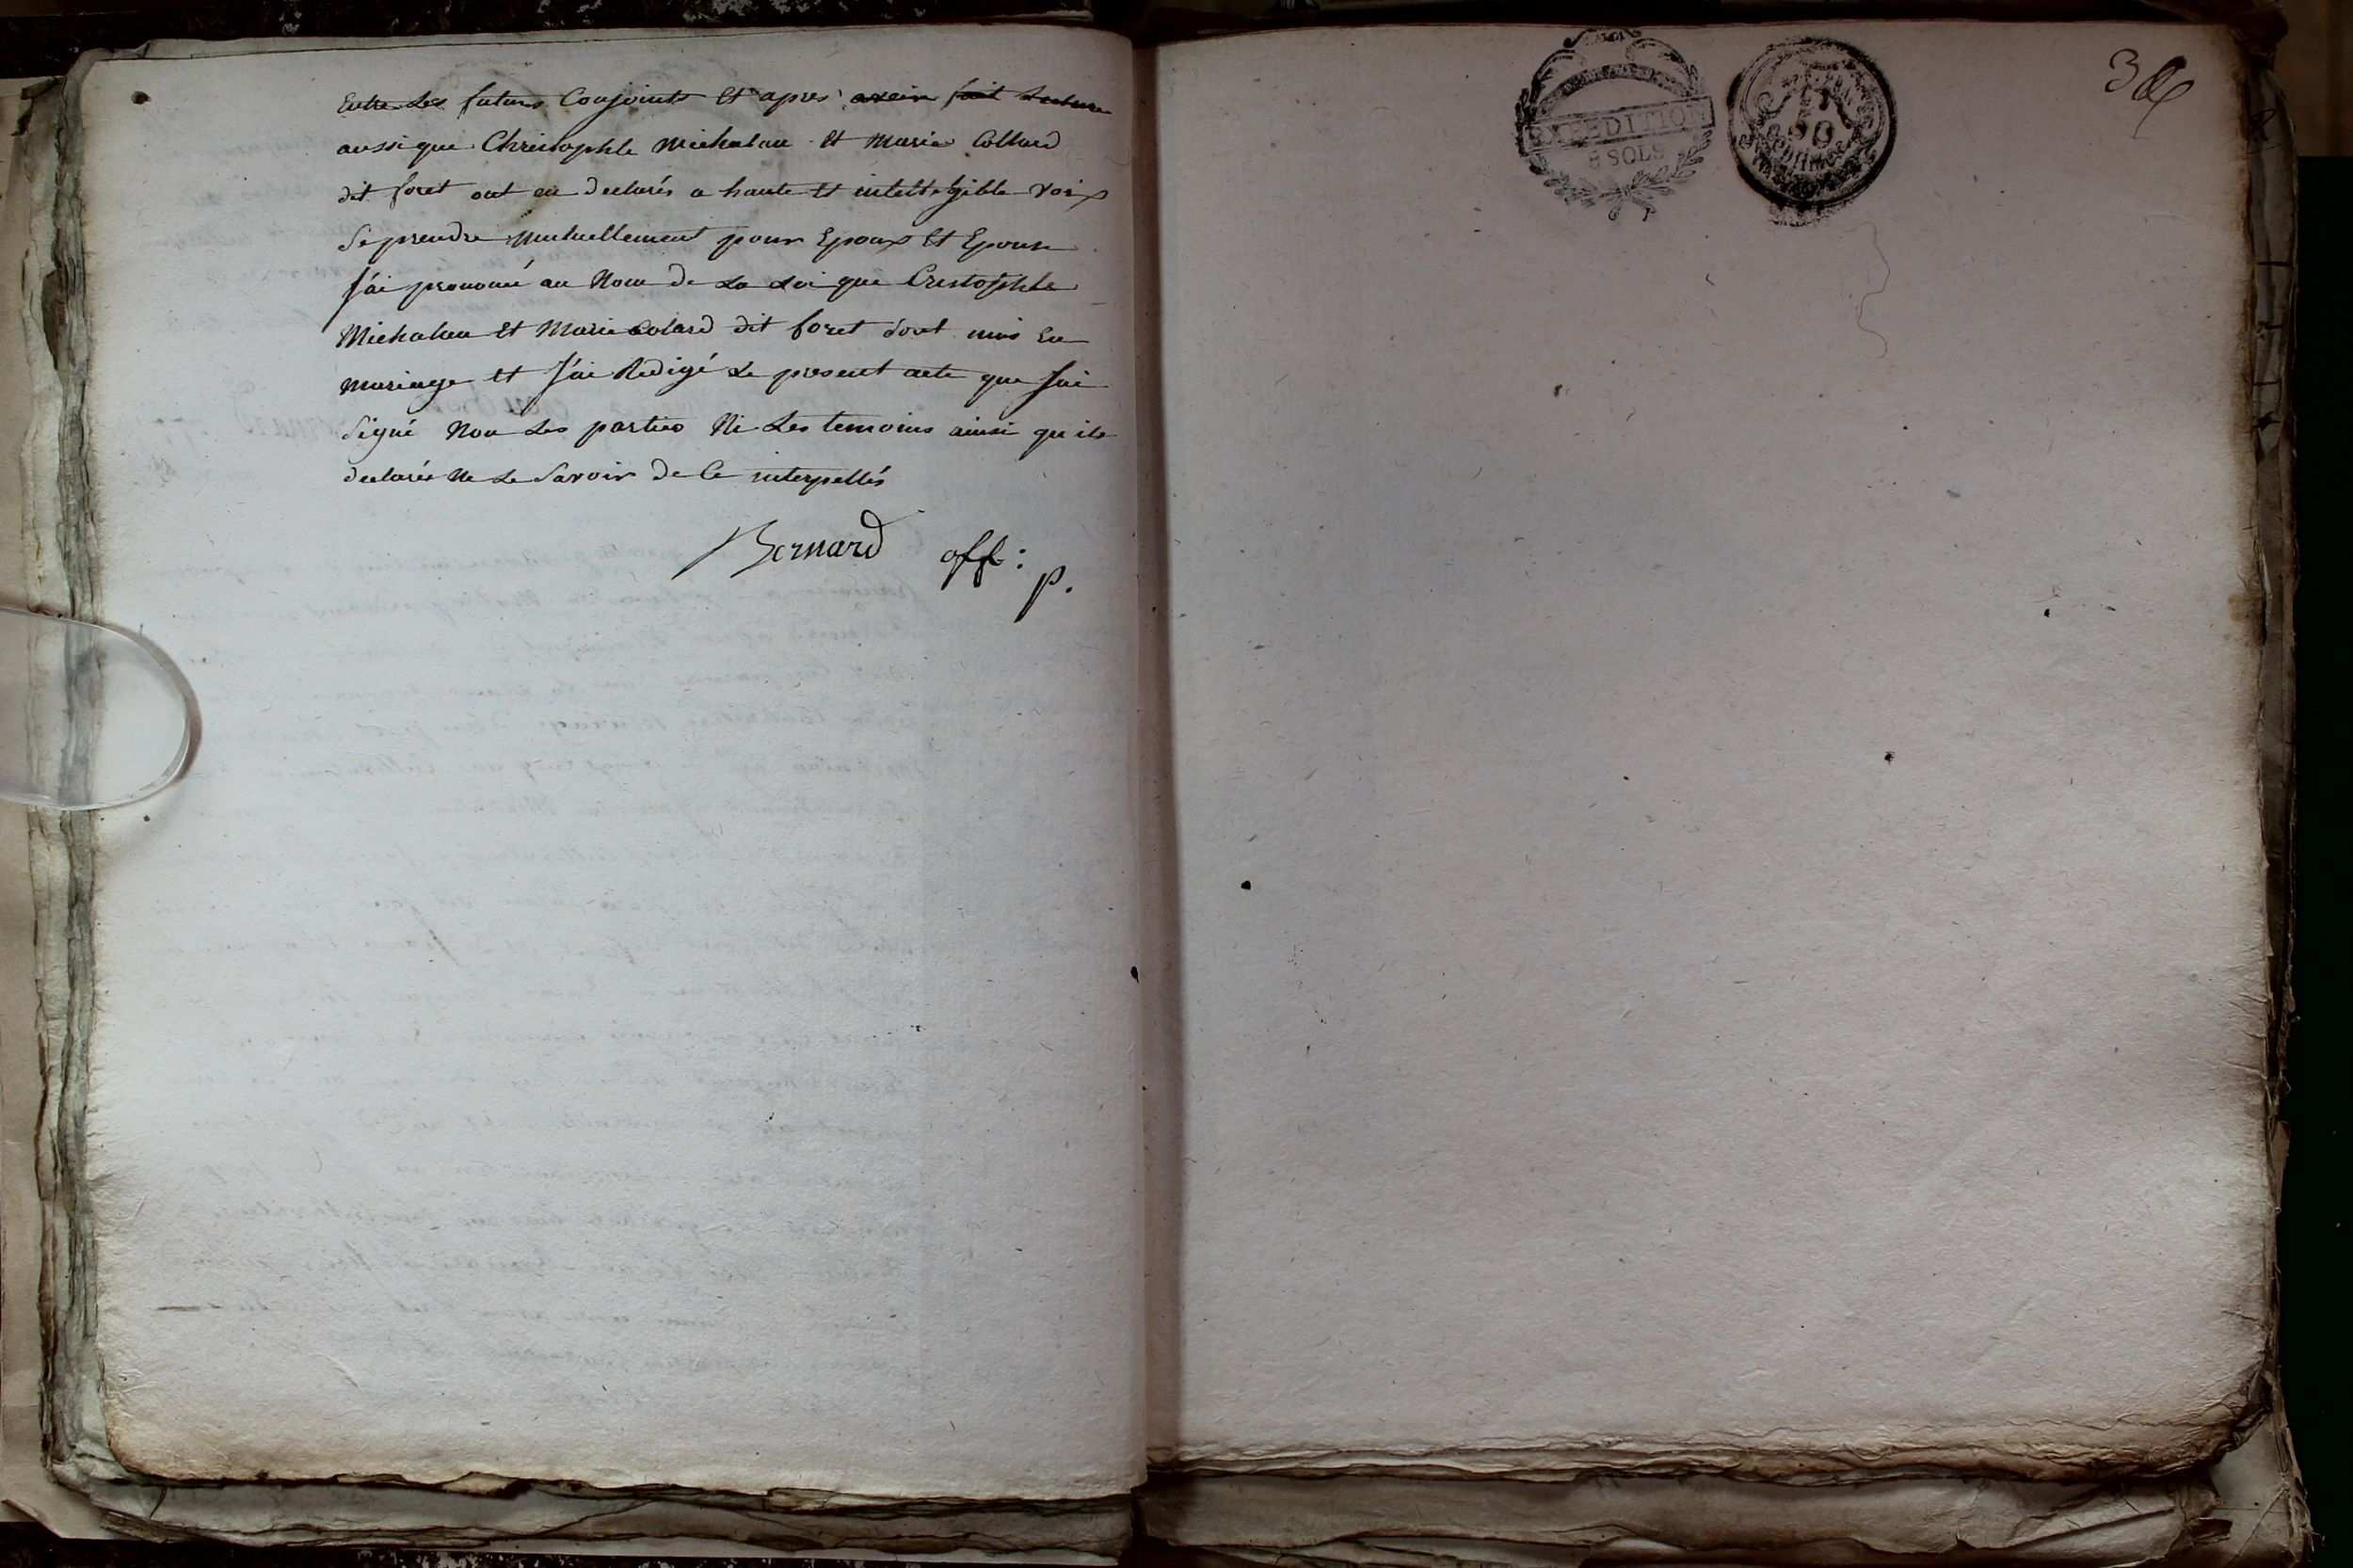 Entre Les futurs Conjoints Et apres avoir fait Lecture
aussi que Christophle Michalau Et Maria Collard
dit foret ont eu declarés a haute Et intelligible voix
Se prendre Mutuellement pour Epoux Et Epouse
J'ai prononcé au Nom de La Loi que Cristophle
Michalau Et Maria Colard dit foret sont unis En
mariage et J'ai Redigé Le present acte que J'ai
Signé Non Les parties Ni Les temoins ainsi qu'ils
declarés Ne Le Savoir de Ce interpellés
Bernard off: p.
EXPEDITION
8 SOLS
50
Centimes